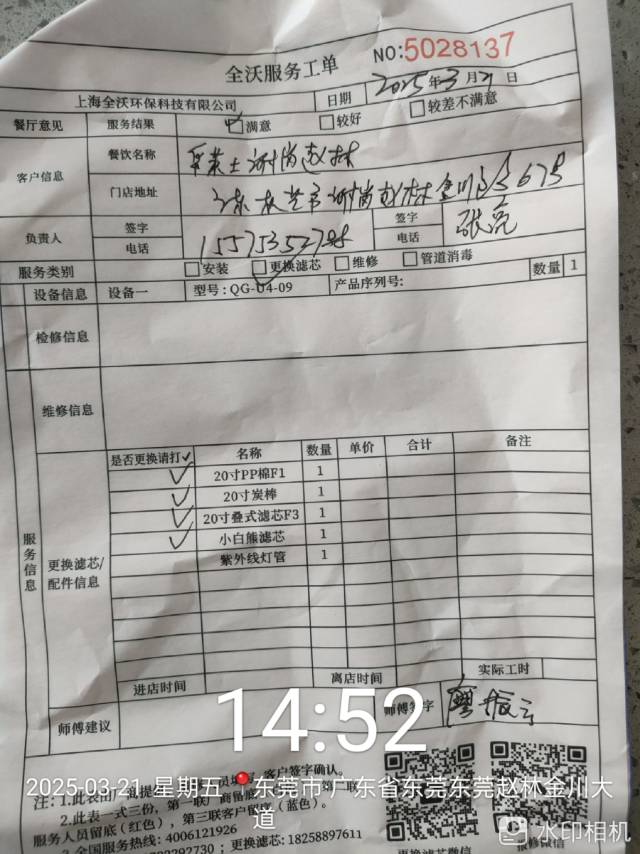 全沃服务工单
NO:5028137
上海全沃环保科技有限公司 日期 2025年3月21日
餐厅意见 服务结果 ☑满意 □较好 □较差不满意
客户信息 餐饮名称
门店地址
负责人 签字 签字 张亮
电话 15575352798 电话
服务类别 □安装 ☑更换滤芯 □维修 □管道消毒
设备信息 设备一 型号:QG-U4-09 产品序列号: 数量 1
检修信息
维修信息
是否更换请打✓ 名称 数量 单价 合计 备注
✓ 20寸PP棉F1 1
✓ 20寸炭棒 1
✓ 20寸叠式滤芯F3 1
✓ 小白熊滤芯 1
紫外线灯管 1
服务信息
更换滤芯/
配件信息
进店时间 离店时间 实际工时
师傅建议 师傅签字
14:52
2025-03-21 星期五 东莞市广东省东莞东莞赵林金川大道
客户签字确认。
注:1.此表由
2.此表一式三份,第一联厂商留
服务人员留底(红色),第三联客户留底(蓝色)。
3.全国服务热线:4006121926
更换滤芯:18258897611
水印相机